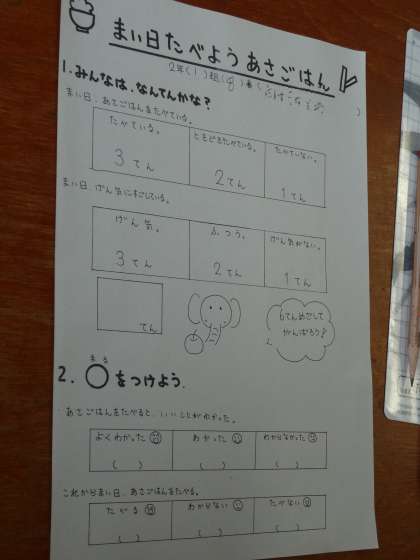 まい日たべよう あさごはん
2年(1)組(8)番(
)
1.みんなは、なんてんかな?
まい日、あさごはんをたべている。
たべている。 ときどきたべている。 たべていない。
3てん 2てん 1てん
まい日、げん気にすごしている。
げん気。 ふつう。 げん気がない。
3てん 2てん 1てん
てん
6てんめざして
がんばろう♪
まる
2.○をつけよう.
あさごはんをたべると、いいことがわかった。
よくわかった わかった わからなかった
( ) ( ) ( )
これからまい日、あさごはんをたべる。
たべる わからない たべない
( ) ( ) ( )